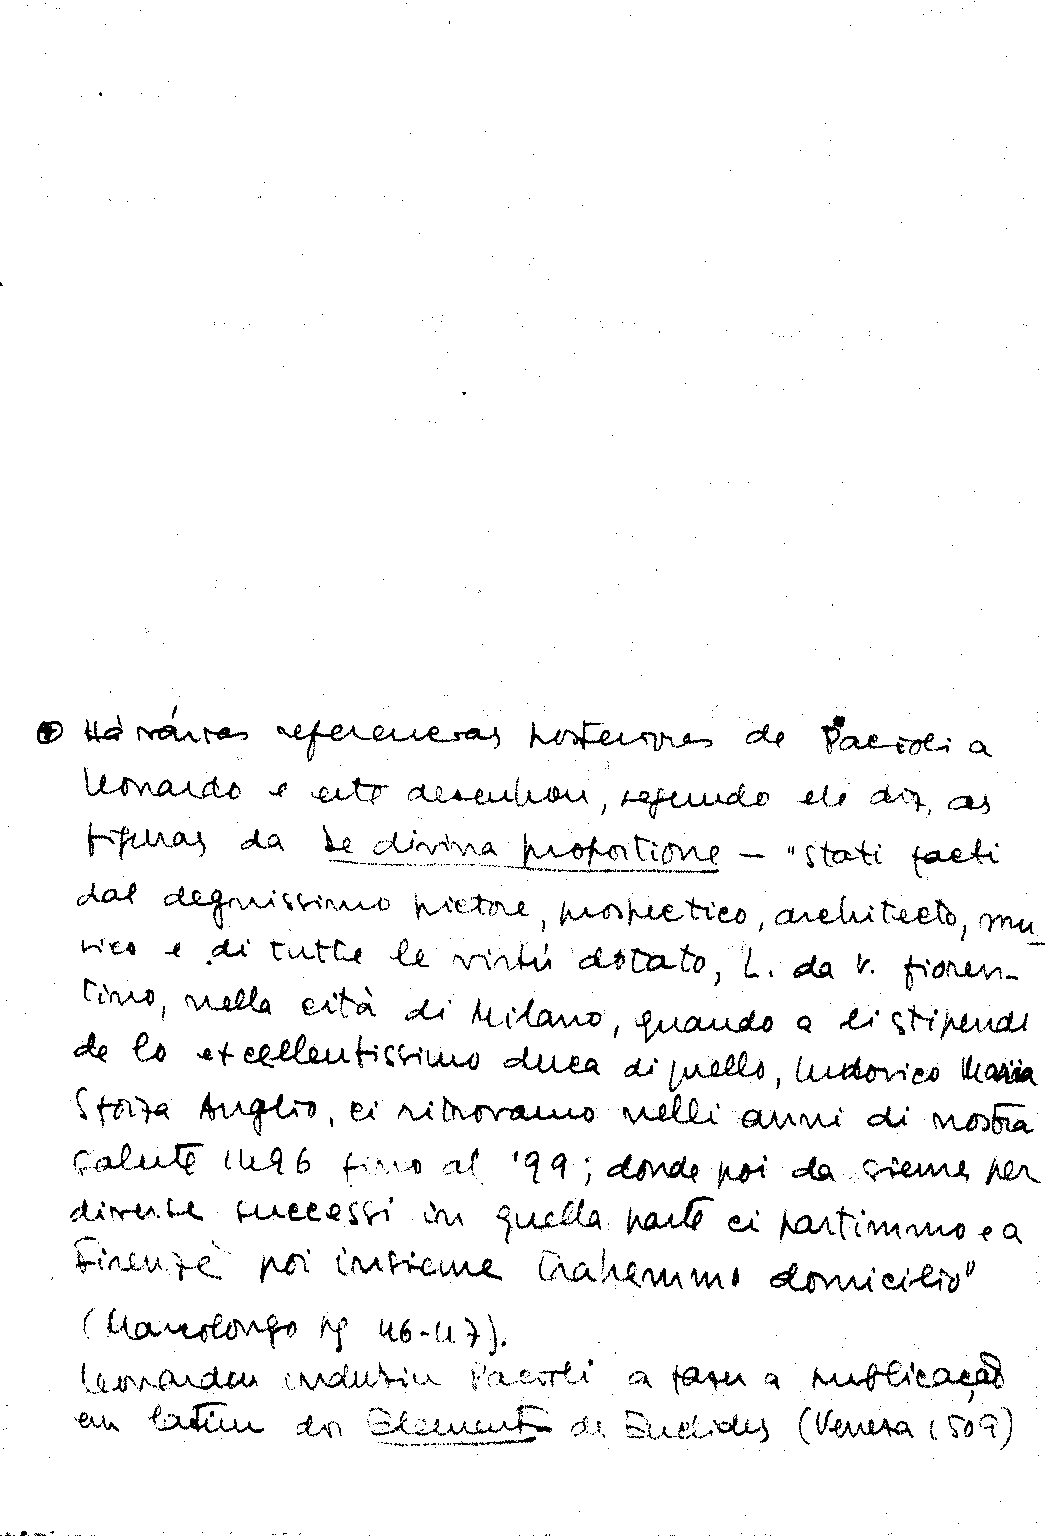 ⊕ Há várias referencias posteriores de Pacioli a
Leonardo e este desenhou, segundo ele diz, as
figuras da De divina proportione – "stati facti
dal degnissimo pictore, prospectico, architecto, mu-
sico e di tutte le virtú dotato, L. da V. fioren-
tino, nella cità di Milano, quando a li stipendi
de lo excellentissimo duca di quello, Ludovico Maria
Sforza Anglio, ci ritrovamo nelli anni di nostra
salute 1496 fino al '99; donde poi da sieme per
diverse successi in quella parte ci partimmo e a
Firenze poi insieme trahemmo domicilio"
(Marcolongo pg 46-47).
Leonardeu induziu Pacioli a fazer a publicação
em latim dos Elementos de Euclides (Veneza 1509)